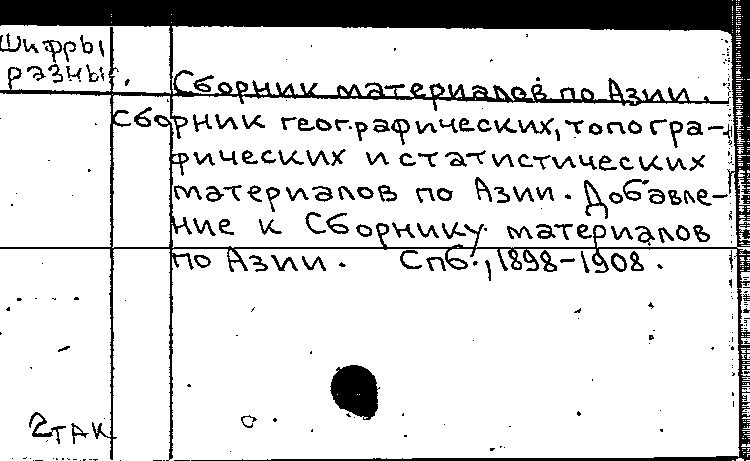 Шифры
разные.
Сборник материалов по Азии.
Сборник географических, топогра-
фических и статистических
материалов по Азии. Добавле-
ние к Сборнику материалов
по Азии. Спб., 1898-1908.
2ТАК